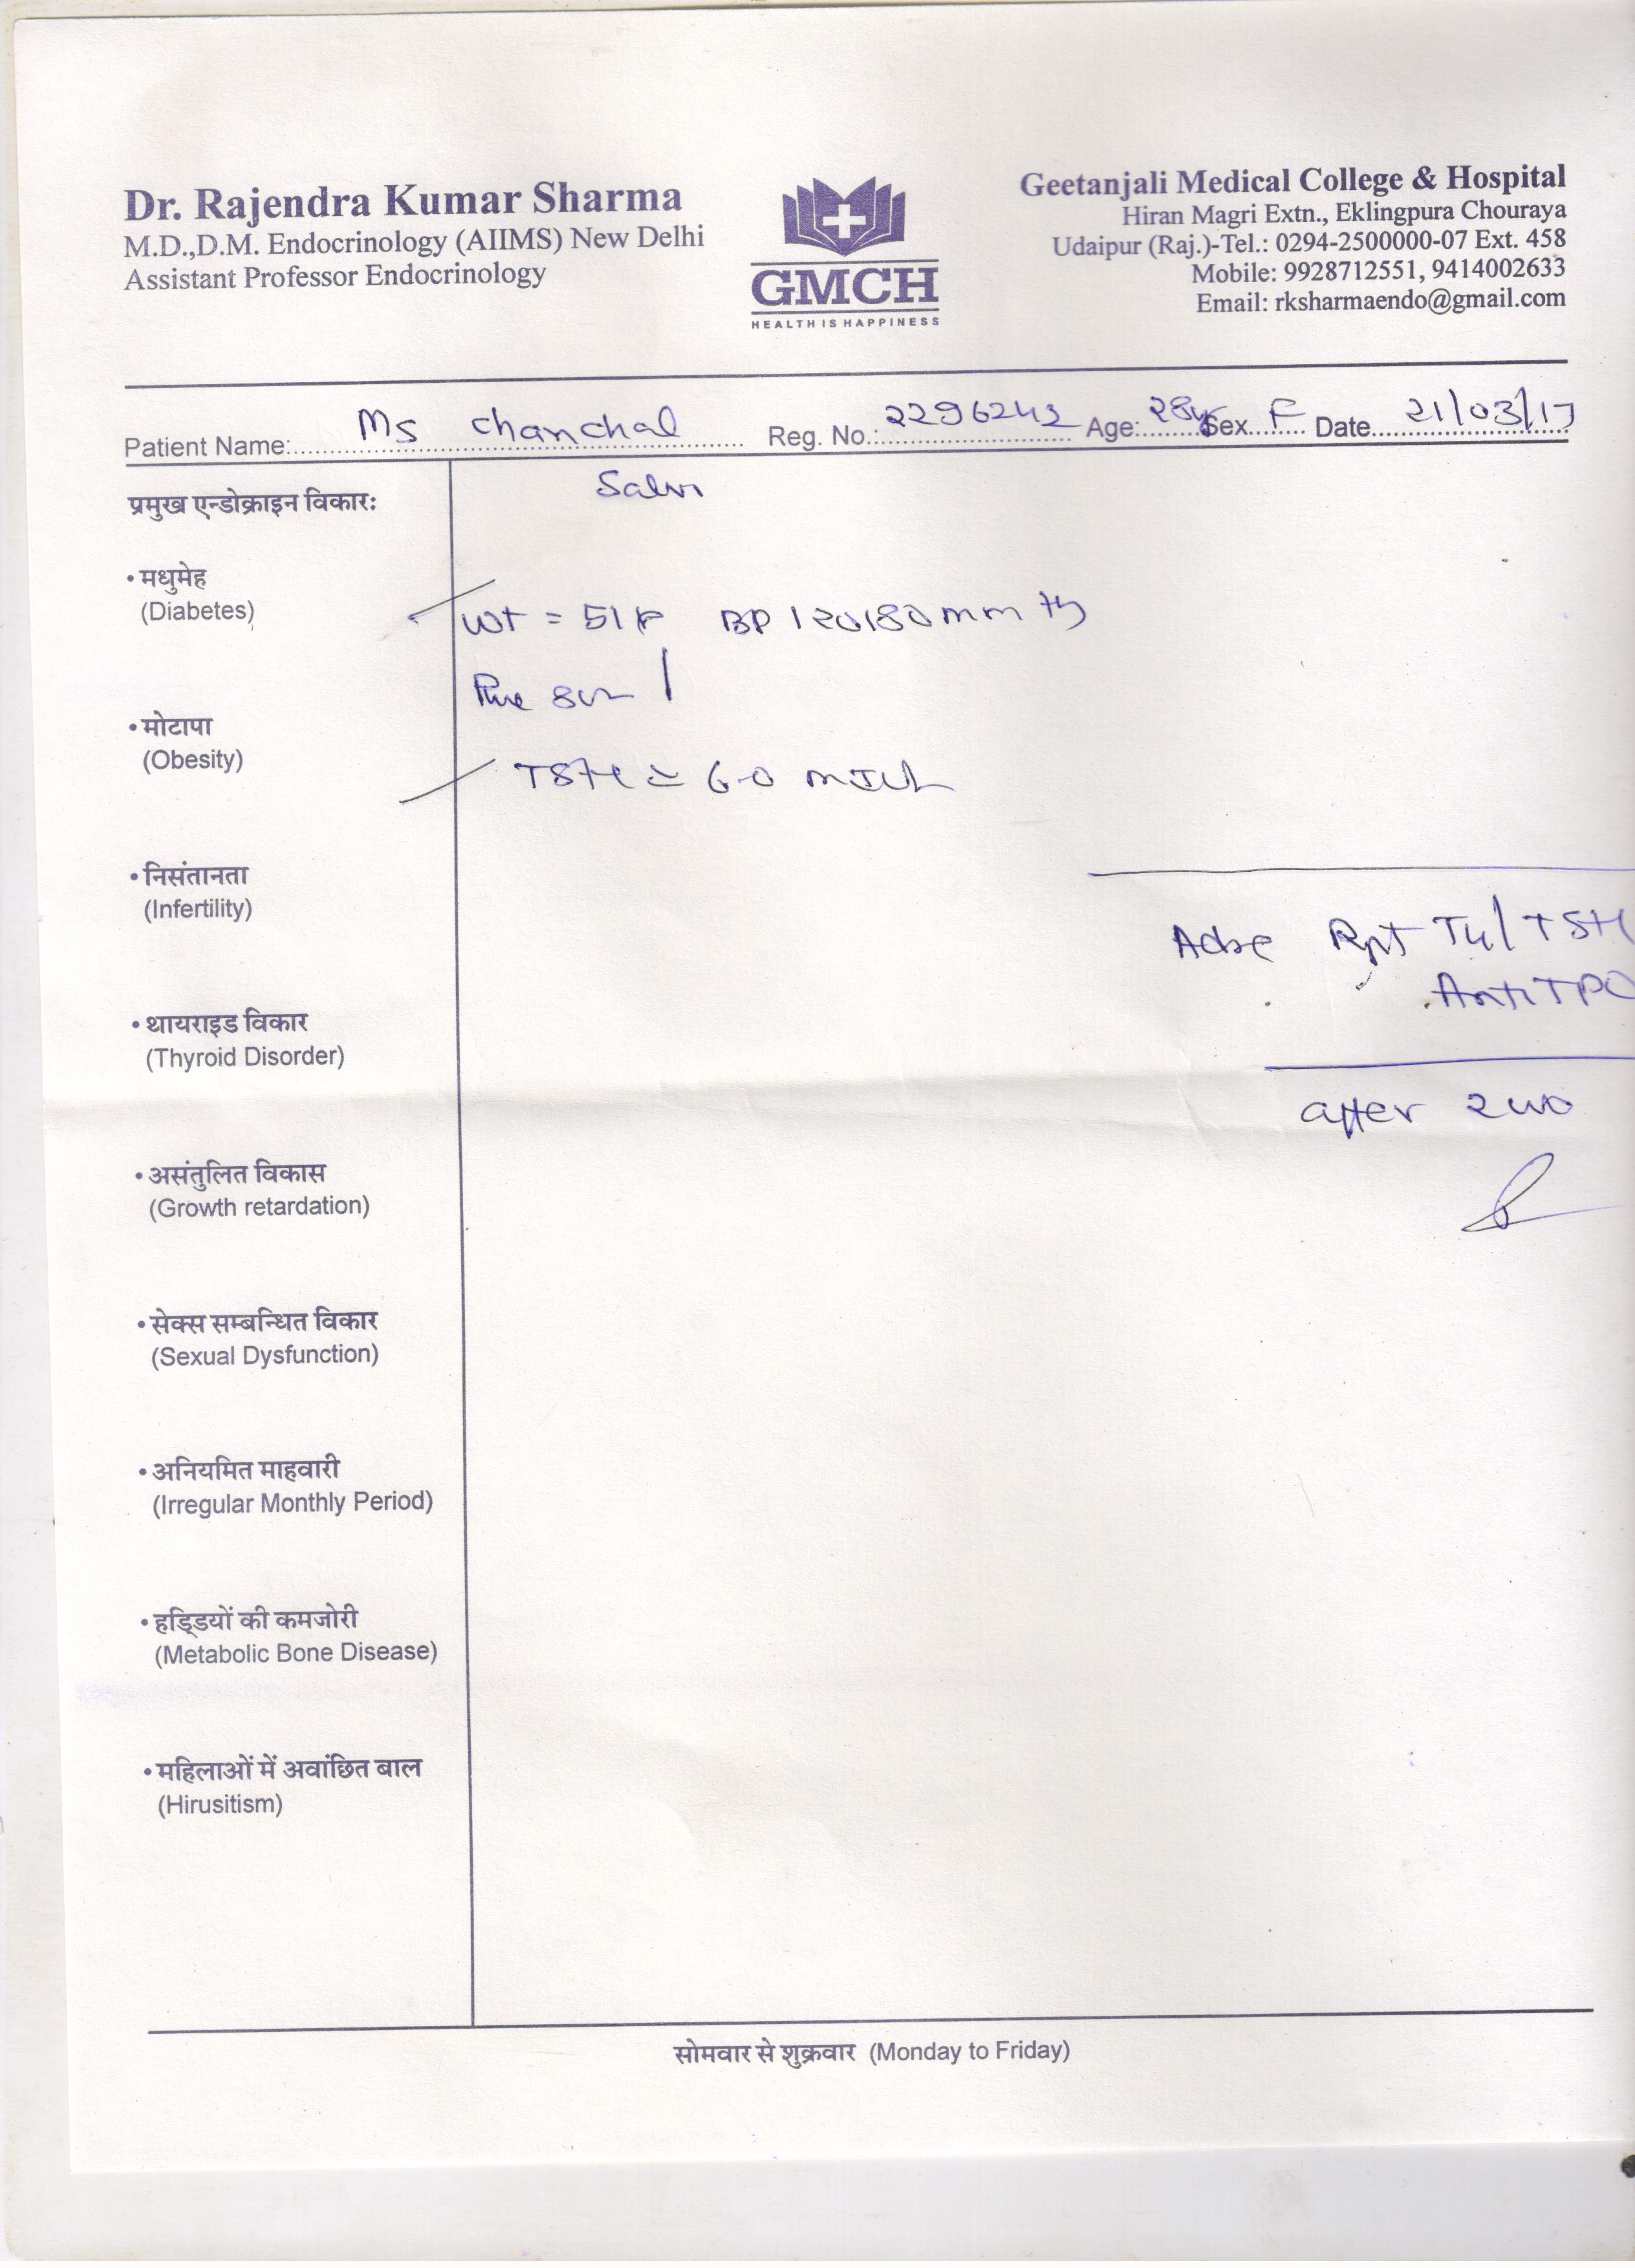 Dr. Rajendra Kumar Sharma
M.D.,D.M. Endocrinology (AIIMS) New Delhi
Assistant Professor Endocrinology
GMCH
HEALTH IS HAPPINESS
Geetanjali Medical College & Hospital
Hiran Magri Extn., Eklingpura Chouraya
Udaipur (Raj.)-Tel.: 0294-2500000-07 Ext. 458
Mobile: 9928712551, 9414002633
Email: rksharmaendo@gmail.com
Patient Name: Ms Chanchal Reg. No.: 2296243 Age: 28yr Sex F Date 21/03/17
Salvi
प्रमुख एन्डोक्राइन विकारः
• मधुमेह
(Diabetes)
wt = 51 BP 120/80 mm Hg
• मोटापा
(Obesity)
TSH = 6.0
• निसंतानता
(Infertility)
Rpt T4/TSH
Anti TPO
• थायराइड विकार
(Thyroid Disorder)
after
• असंतुलित विकास
(Growth retardation)
• सेक्स सम्बन्धित विकार
(Sexual Dysfunction)
• अनियमित माहवारी
(Irregular Monthly Period)
• हड्डियों की कमजोरी
(Metabolic Bone Disease)
• महिलाओं में अवांछित बाल
(Hirusitism)
सोमवार से शुक्रवार (Monday to Friday)